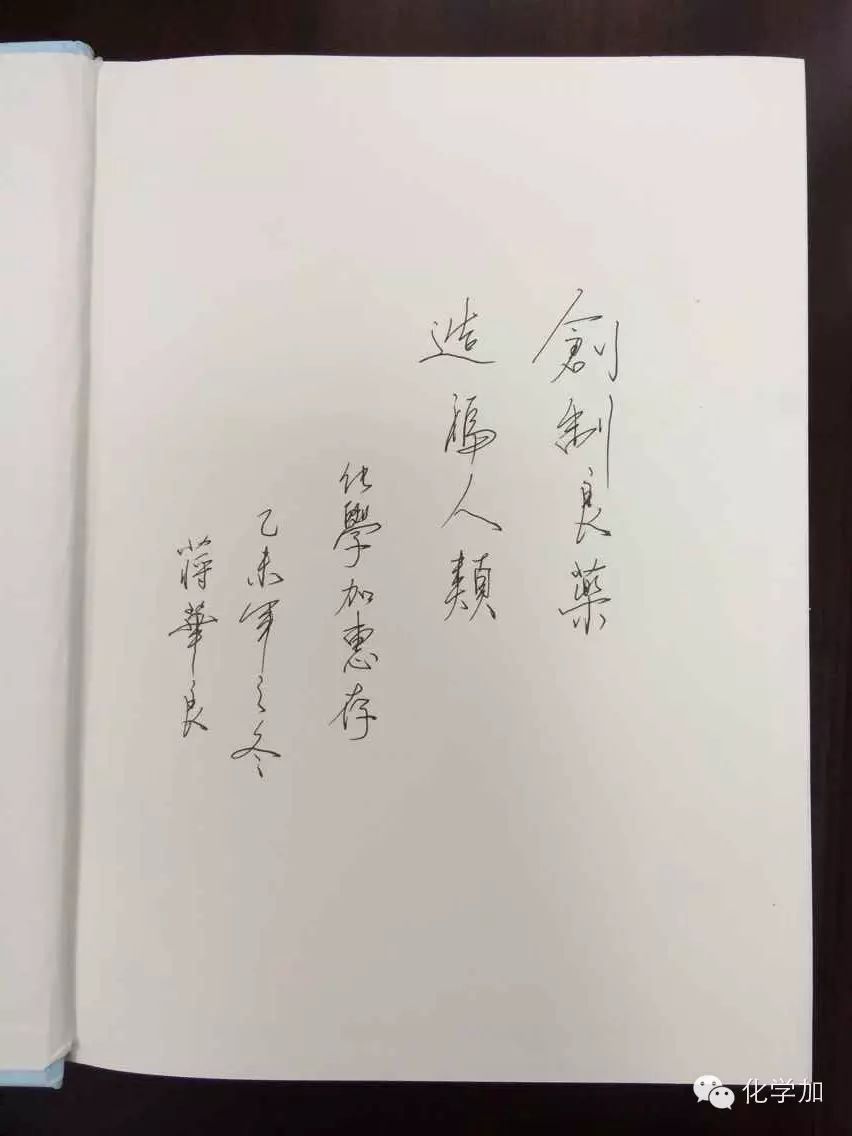 創制良藥
造福人類
化學加惠存
乙未年之冬
蔣華良
化学加